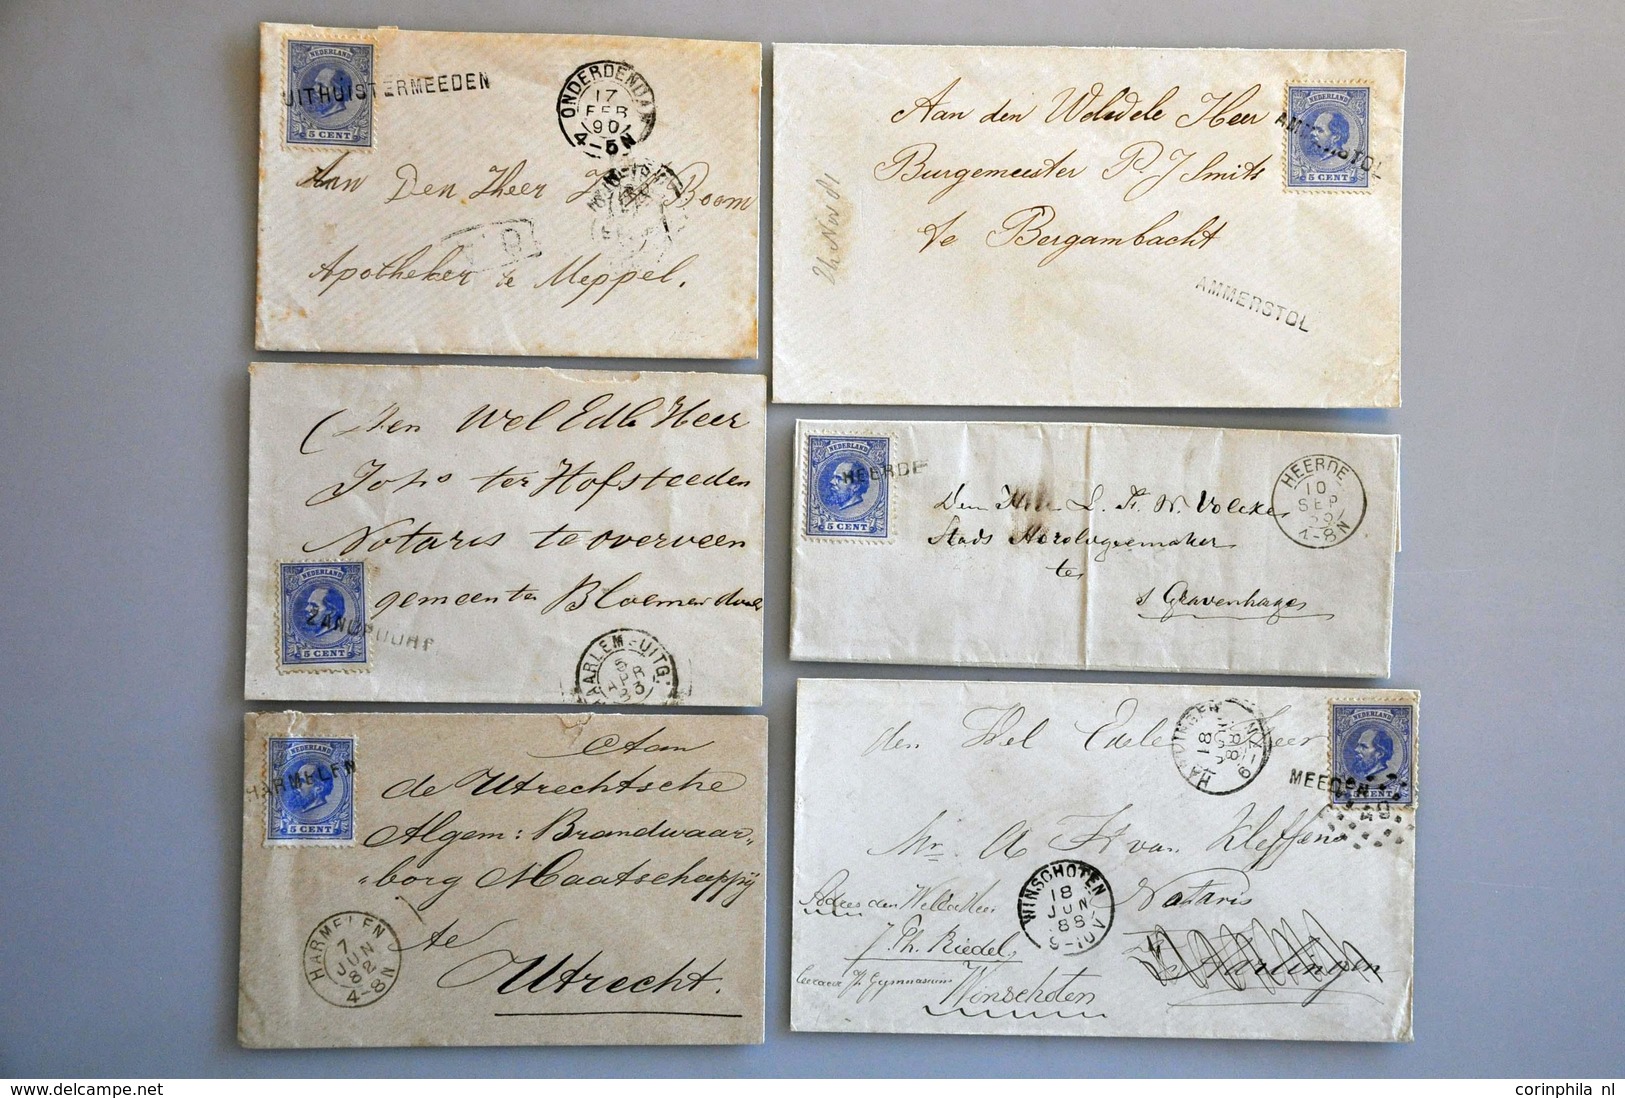 NEDERLAND
5 CENT
UITHUISTERMEEDEN
ONDERDENDAM
17
FEB
90
4-5N
Aan Den Heer Boom
Apotheker te Meppel.
NEDERLAND
5 CENT
Aan den Weledele Heer
Burgemeester P. J Smits
te Bergambacht
AMMERSTOL
AMMERSTOL
Den Wel Edle Heer
Joho ter Hofsteeden
Notaris te overveen
gemeente Bloemendaal
NEDERLAND
5 CENT
ZANDPOORT
HAARLEM-UITG.
5
APR
83
NEDERLAND
5 CENT
HEERDE
HEERDE
10
SEP
7-8N
Den Heer L. A. W. Volcker
Stads Horologiemaker
te
s Gravenhage
NEDERLAND
5 CENT
HARMELEN
Aan
de Utrechtsche
Algem: Brandwaar-
borg Maatschappij
te
Utrecht.
HARMELEN
7
JUN
82
4-8N
NEDERLAND
5 CENT
MEEDEN
HARLINGEN
den Wel Edele Heer
Mr. A H van Kleffens
Notaris
te Harlingen
WINSCHOTEN
18
JUN
88
9-10V
Adres den Weled Heer
Ph. Riedel
leeraar Gymnasium
Winschoten
corinphila nl